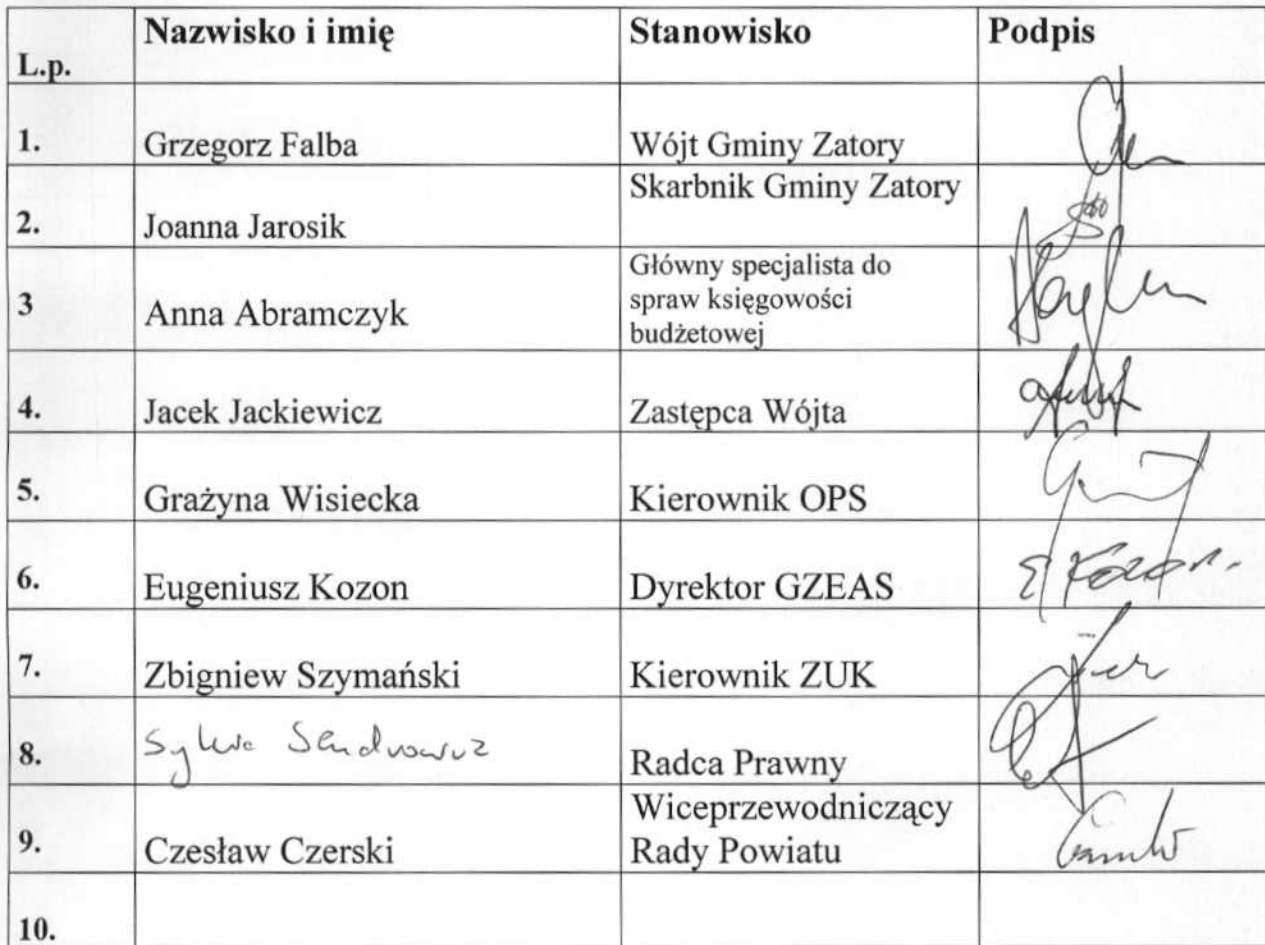 L.p. Nazwisko i imię Stanowisko Podpis
1. Grzegorz Falba Wójt Gminy Zatory
2. Joanna Jarosik Skarbnik Gminy Zatory
3 Anna Abramczyk Główny specjalista do
spraw księgowości
budżetowej
4. Jacek Jackiewicz Zastępca Wójta
5. Grażyna Wisiecka Kierownik OPS
6. Eugeniusz Kozon Dyrektor GZEAS E Kozon
7. Zbigniew Szymański Kierownik ZUK
8. Sylwia Radca Prawny
9. Czesław Czerski Wiceprzewodniczący
Rady Powiatu
10.